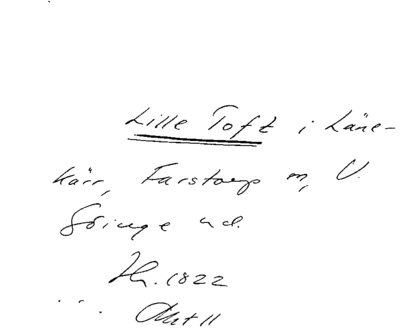 Lille Toft i Läne-
kärr, Farstorp m, V.
Göinge hd.
Hr. 1822
Akt 11